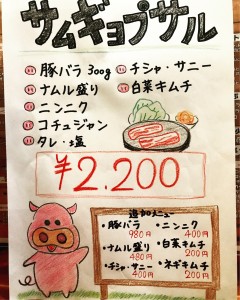 サムギョプサル
豚バラ 300g
チシャ・サニー
ナムル盛り
白菜キムチ
ニンニク
コチュジャン
タレ・塩
¥2.200
追加メニュー
・豚バラ 980円
・ニンニク 400円
・ナムル盛り 480円
・白菜キムチ 200円
・チシャ・サニー 400円
・ネギキムチ 200円